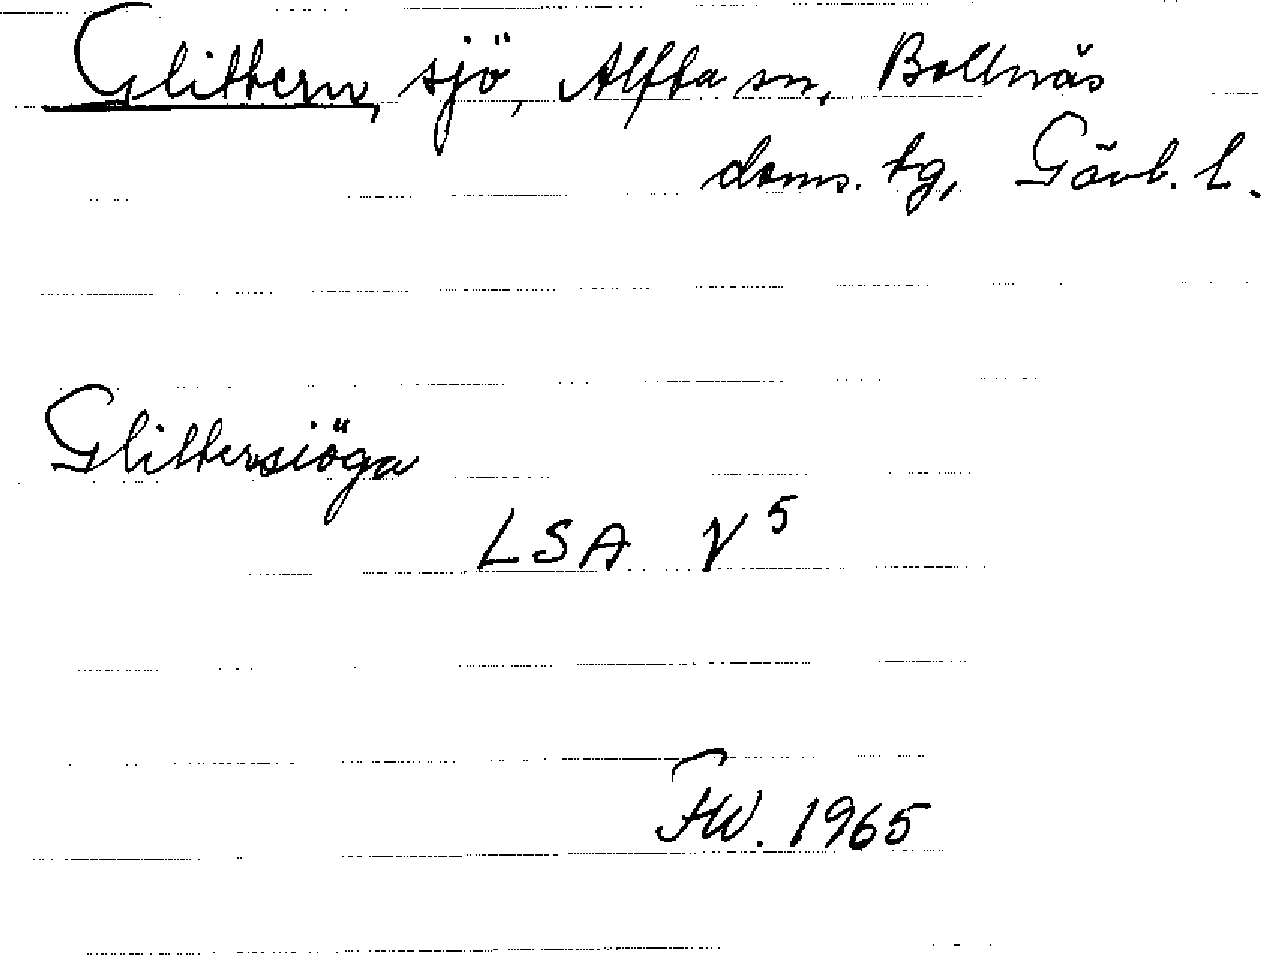 Glittern, sjö, Alfta sn, Bollnäs
doms. tg, Gävl. l.
Glittersiöga
LSA V 5
FW. 1965